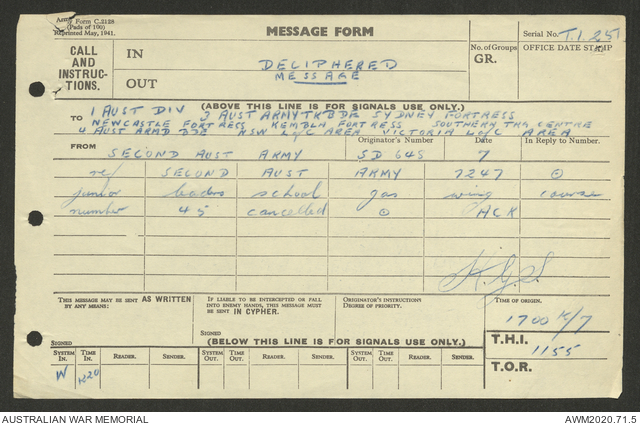 Army Form C.2128
(Pads of 100)
Reprinted May, 1941.
MESSAGE FORM
Serial No. T.I. 251
CALL AND INSTRUCTIONS.
IN
OUT
DECIPHERED
MESSAGE
No. of Groups
GR.
OFFICE DATE STAMP
(ABOVE THIS LINE IS FOR SIGNALS USE ONLY.)
TO
1 AUST DIV 3 AUST ARMY TK BDE SYDNEY FORTRESS
NEWCASTLE FORTRESS KEMBLA FORTRESS SOUTHERN TRG CENTRE
4 AUST ARMD BDE NSW LofC AREA VICTORIA LofC AREA
FROM
Originator's Number
Date
In Reply to Number.
SECOND AUST ARMY SD 645 7
re/ SECOND AUST ARMY 7247 ⊙
junior leaders school gas wing course
number 45 cancelled ⊙ ACK
THIS MESSAGE MAY BE SENT AS WRITTEN BY ANY MEANS:
IF LIABLE TO BE INTERCEPTED OR FALL INTO ENEMY HANDS, THIS MESSAGE MUST BE SENT IN CYPHER.
ORIGINATOR'S INSTRUCTIONS
DEGREE OF PRIORITY.
TIME OF ORIGIN.
1700 K/7
SIGNED
SIGNED
(BELOW THIS LINE IS FOR SIGNALS USE ONLY.)
T.H.I.
1155
SYSTEM IN.
TIME IN.
READER.
SENDER.
SYSTEM OUT.
TIME OUT.
READER.
SENDER.
SYSTEM OUT.
TIME OUT.
READER.
SENDER.
T.O.R.
W
AUSTRALIAN WAR MEMORIAL
AWM2020.71.5